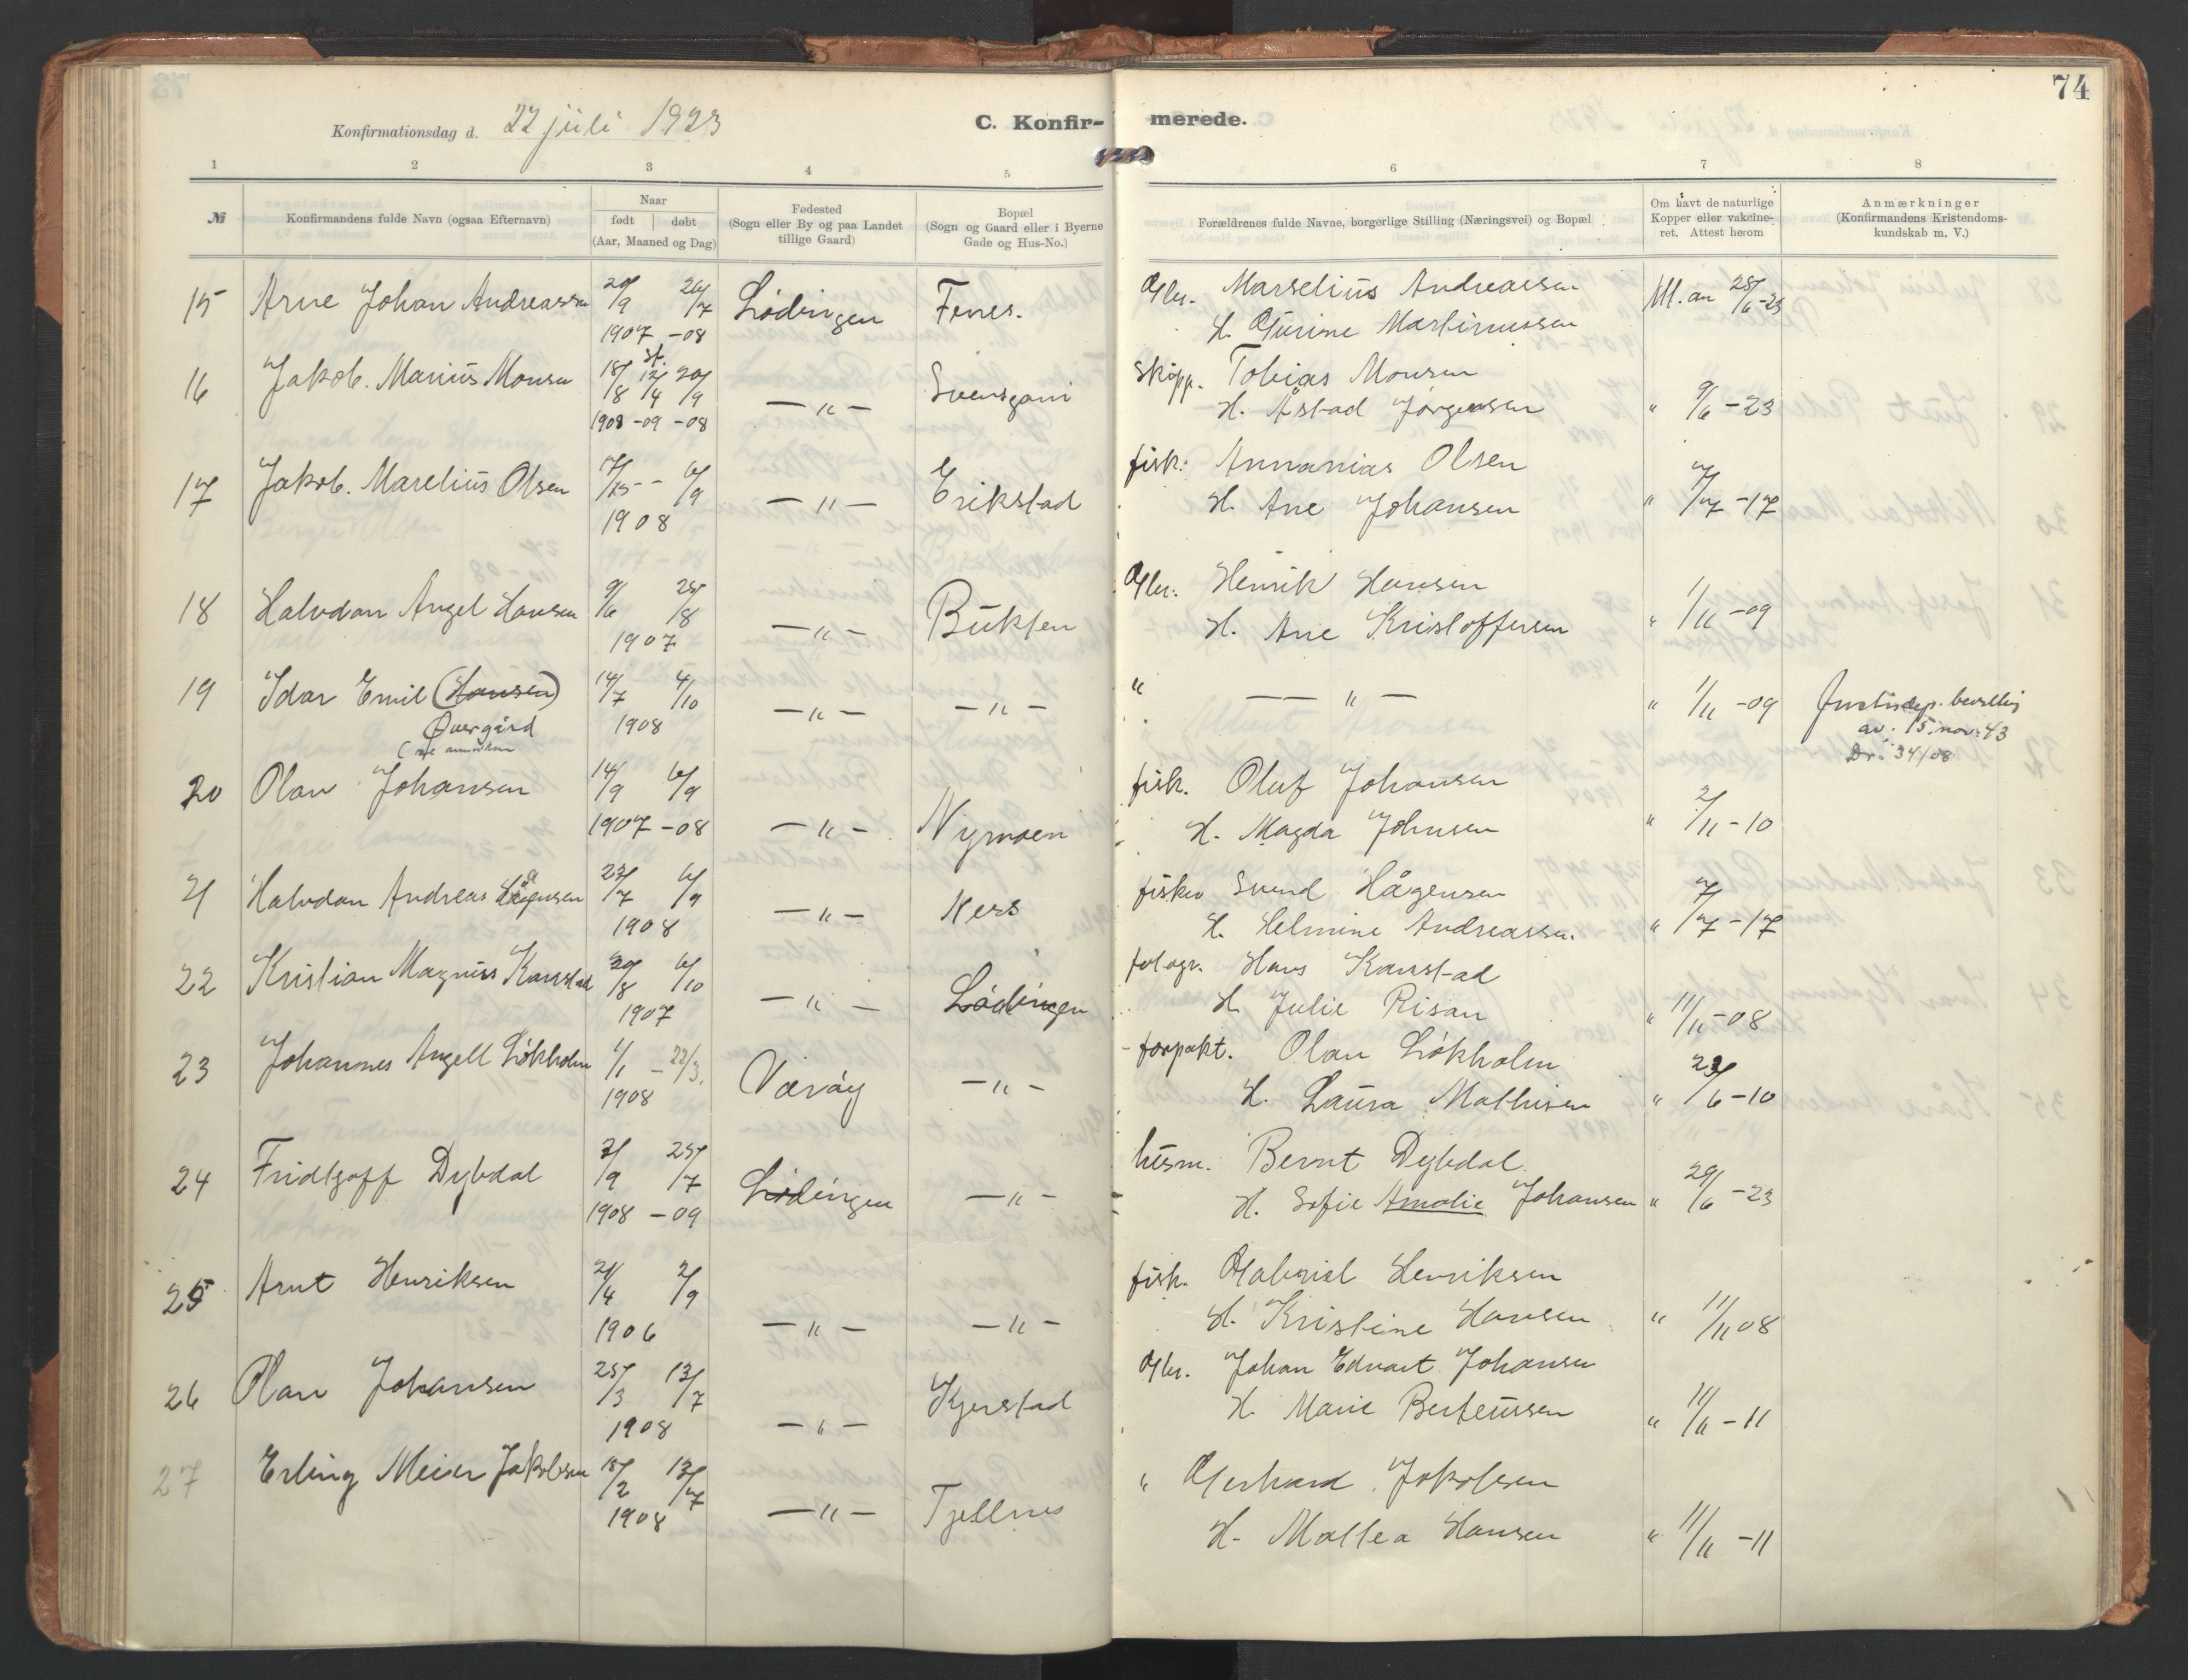 74
Konfirmationsdag d. 22 juli 1923
C. Konfir- merede.
1 2 3 4 5 6 7 8
№
Konfirmandens fulde Navn (ogsaa Efternavn)
Naar
født døbt
(Aar, Maaned og Dag)
Fødested
(Sogn eller By og paa Landet
tillige Gaard)
Bopæl
(Sogn og Gaard eller i Byerne
Gade og Hus-No.)
Forældrenes fulde Navne, borgerlige Stilling (Næringsvei) og Bopæl
Om havt de naturlige
Kopper eller vakcine-
ret. Attest herom
Anmærkninger
(Konfirmandens Kristendoms-
kundskab m. V.)
15 Arne Johan Andreassen 20/9 26/7 Lødingen Fenes. Gbr. Marselius Andreassen
1907 -08 H. Gurine Martinussen
16 Jakob. Marius Monsen 18/8 12/4 20/9 —"— Skipp. Tobias Monsen
1908 -09 -08 H. Åstad Jørgensen " 9/6 -23
17 Jakob. Marelius Olsen 17/5 - 6/9 —"— Erikstad fisk. Annanias Olsen
1908 H. Ane Johansen " 7/7 -17
18 Halvdan Angel Hansen 9/6 25/8 —"— Bukten Gbr. Henrik Hansen
1907 H. Ane Kristoffersen " 1/11 -09
19 Idar Emil (Hansen) 14/7 4/10 —"— —"— " —"— " 1/11 -09 Justisdep. bevillig
Øvergård 1908 av. 15. nov. 43
Dr. 34/08
20 Olav Johansen 14/9 6/9 —"— Nymoen fisk. Oluf Johansen
1907 -08 H. Magda Johnsen " 2/11 -10
21 Halvdan Andreas Hågensen 23/7 6/9 —"— Ness fisker Svend Hågensen
1908 H. Helmine Andreassen. " 7/7 -17
22 Kristian Magnus Kanstad 20/8 6/10 —"— Lødingen fotogr. Hans Kanstad
1907 H. Julie Risan " 11/11 -08
23 Johannes Angell Løkholm 1/1 - 22/3. Værøy —"— forpakt. Olav Løkholm
1908 H. Laura Mathisen " 23/6 -10
24 Fridtjoff Dybdal 7/9 25/7 Lødingen —"— husm. Bernt Dybdal
1908 -09 H. Sofie Amalie Johansen " 29/6 -23
25 Arnt Henriksen 21/4 2/9 —"— —"— fisk. Gabriel Henriksen
1906 H. Kristine Hansen " 11/11 08
26 Olav Johansen 25/3 13/7 —"— Kjerstad Gbr. Johan Edvart Johansen
1908 H. Marie Berteussen " 11/11 -11
27 Erling Meier Jakobsen 18/2 13/7 —"— Tjellnes " Gerhard Jakobsen
1908 H. Mallea Hansen " 11/11 -11